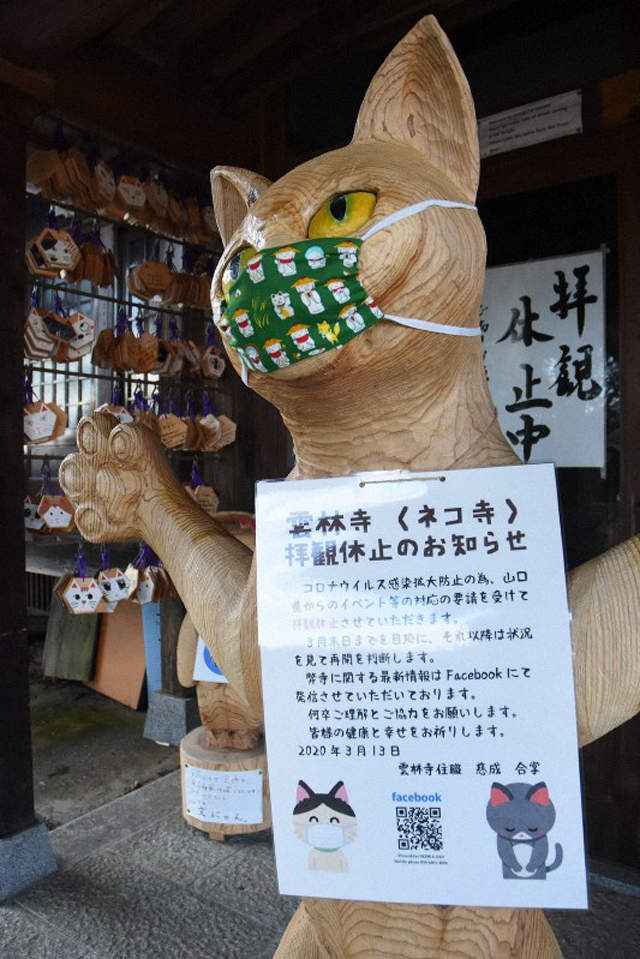 拝観
休止中
雲林寺〈ネコ寺〉
拝観休止のお知らせ
コロナウイルス感染拡大防止の為、山口
県からのイベント等の対応の要請を受けて
拝観休止とさせていただきます。
3月末日までを目処に、それ以降は状況
を見て再開を判断します。
弊寺に関する最新情報はFacebookにて
発信させていただいております。
何卒ご理解とご協力をお願いします。
皆様の健康と幸せをお祈りします。
2020年3月13日
雲林寺住職 慈成 合掌
facebook